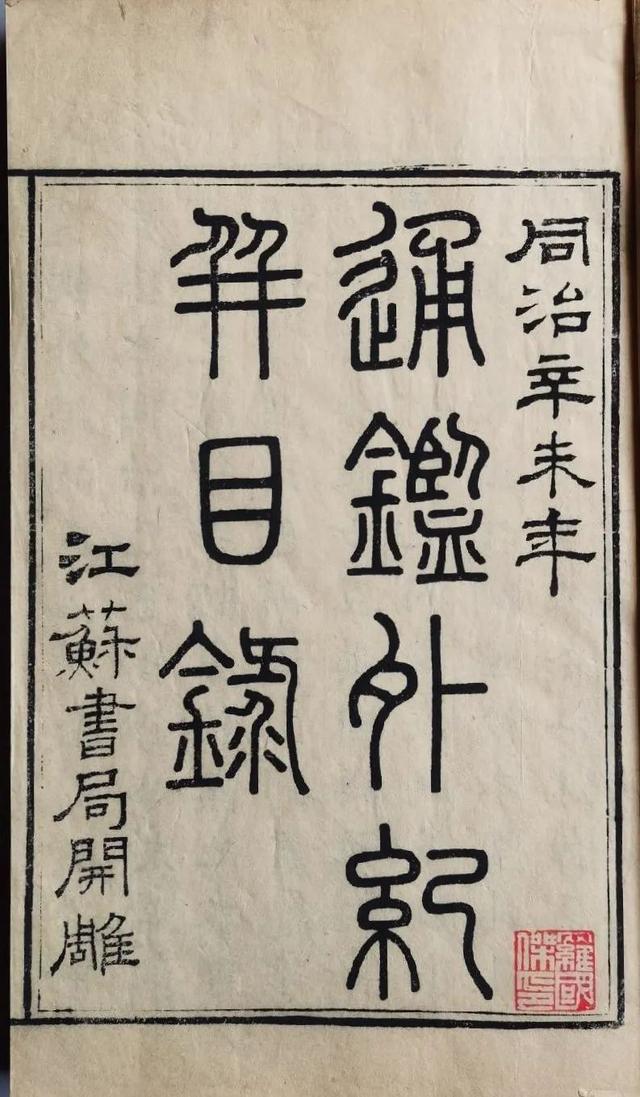 同治辛未年
通鑑外紀
并目錄
江蘇書局開雕
羅國
傑印